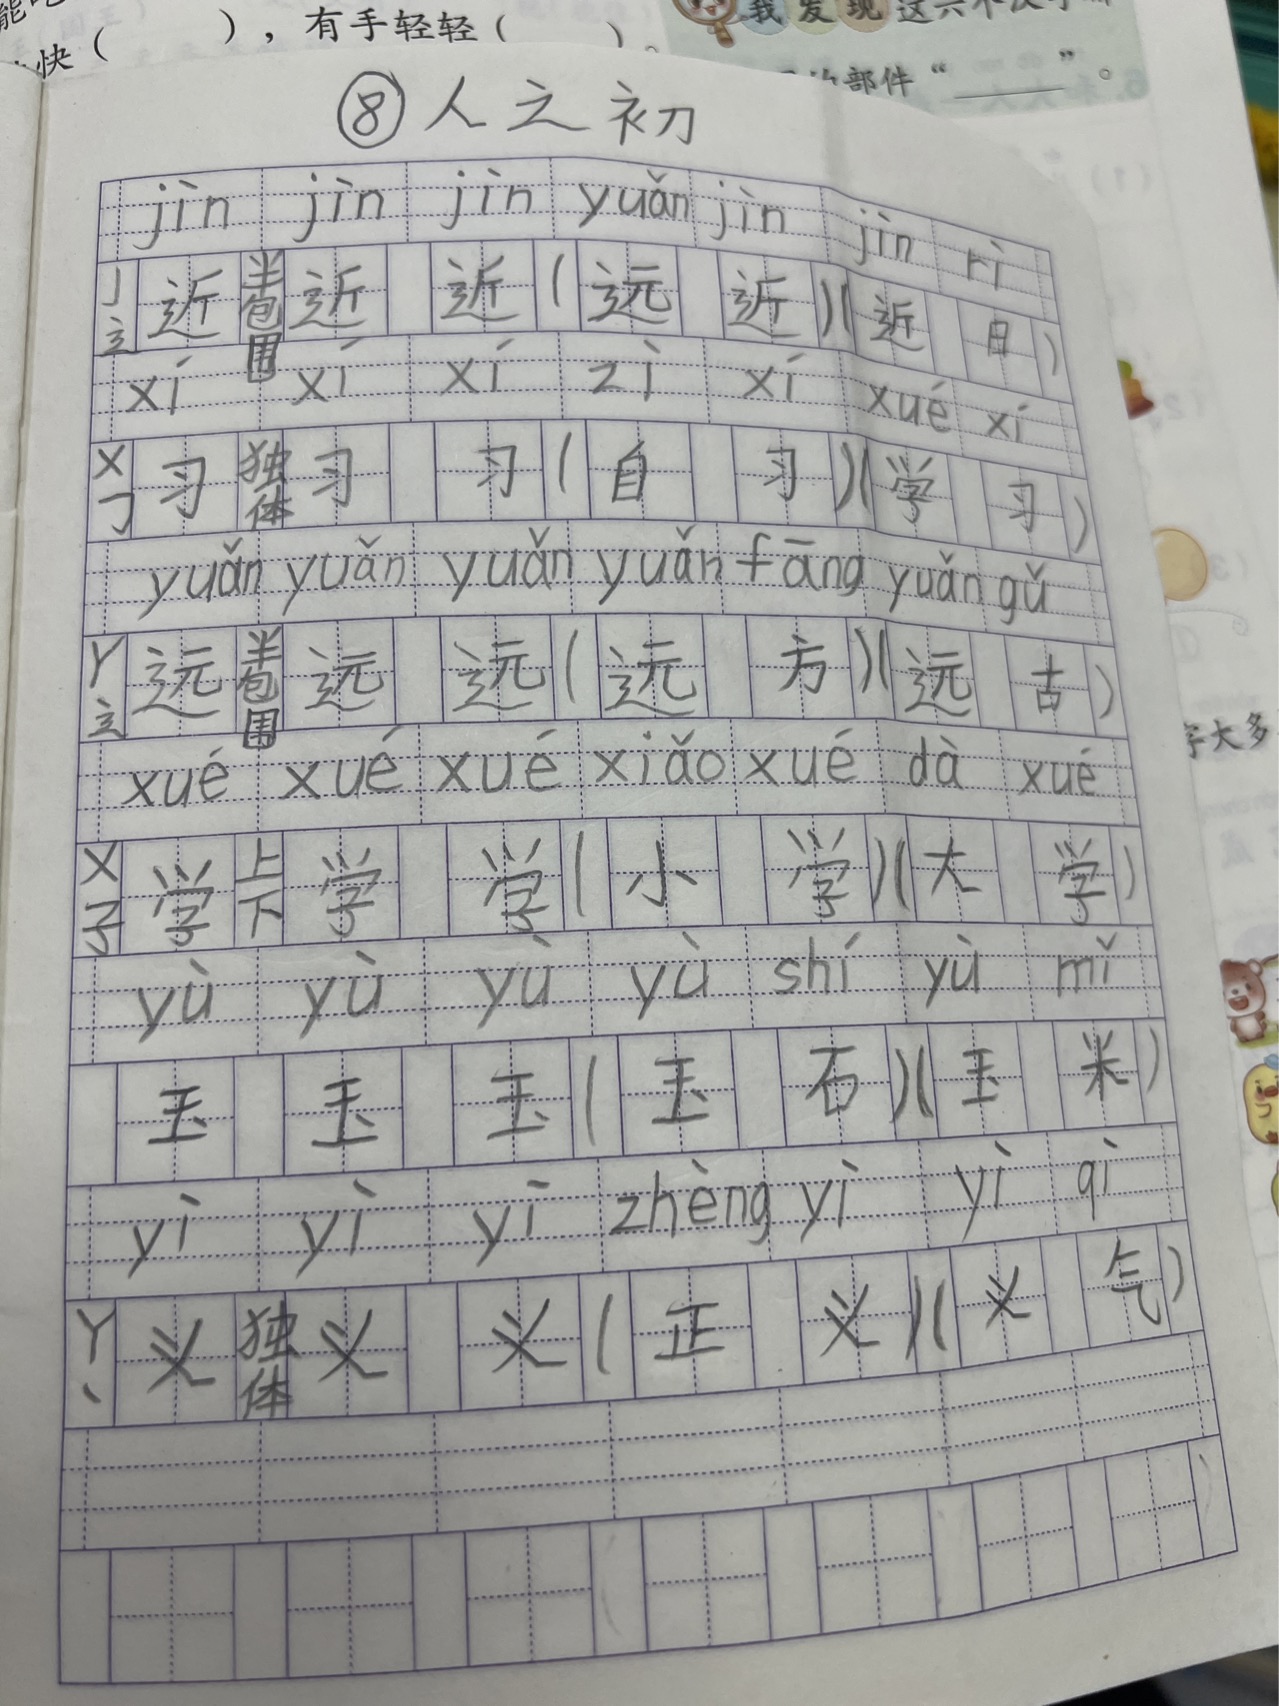 快（ ），有手轻轻（ ）。
我发现
部件“ ”。
⑧人之初
jìn jìn jìn yuǎn jìn jìn rì
J 辶 近 半包围 近 近（远 近）（近 日）
xí xí xí zì xí xué xí
X 𠃌 习 独体 习 习（自 习）（学 习）
yuǎn yuǎn yuǎn yuǎn fāng yuǎn gǔ
Y 辶 远 半包围 远 远（远 方）（远 古）
xué xué xué xiǎo xué dà xué
X 子 学 上下 学 学（小 学）（大 学）
yù yù yù yù shí yù mǐ
玉 玉 玉（玉 石）（玉 米）
yì yì yì zhèng yì yì qì
Y 丶 义 独体 义 义（正 义）（义 气）
字大多